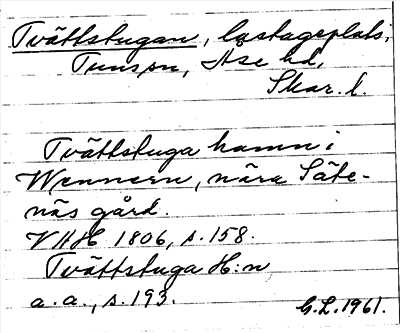 Tvättstugan, lastageplats,
Tunsøn, Åse hd,
Skar. l.
Tvättstuga hamn i
Wennern, nära Säte-
näs gård.
VHH 1806, s. 158.
Tvättstuga H:n
a. a., s. 193.
G.L. 1961.